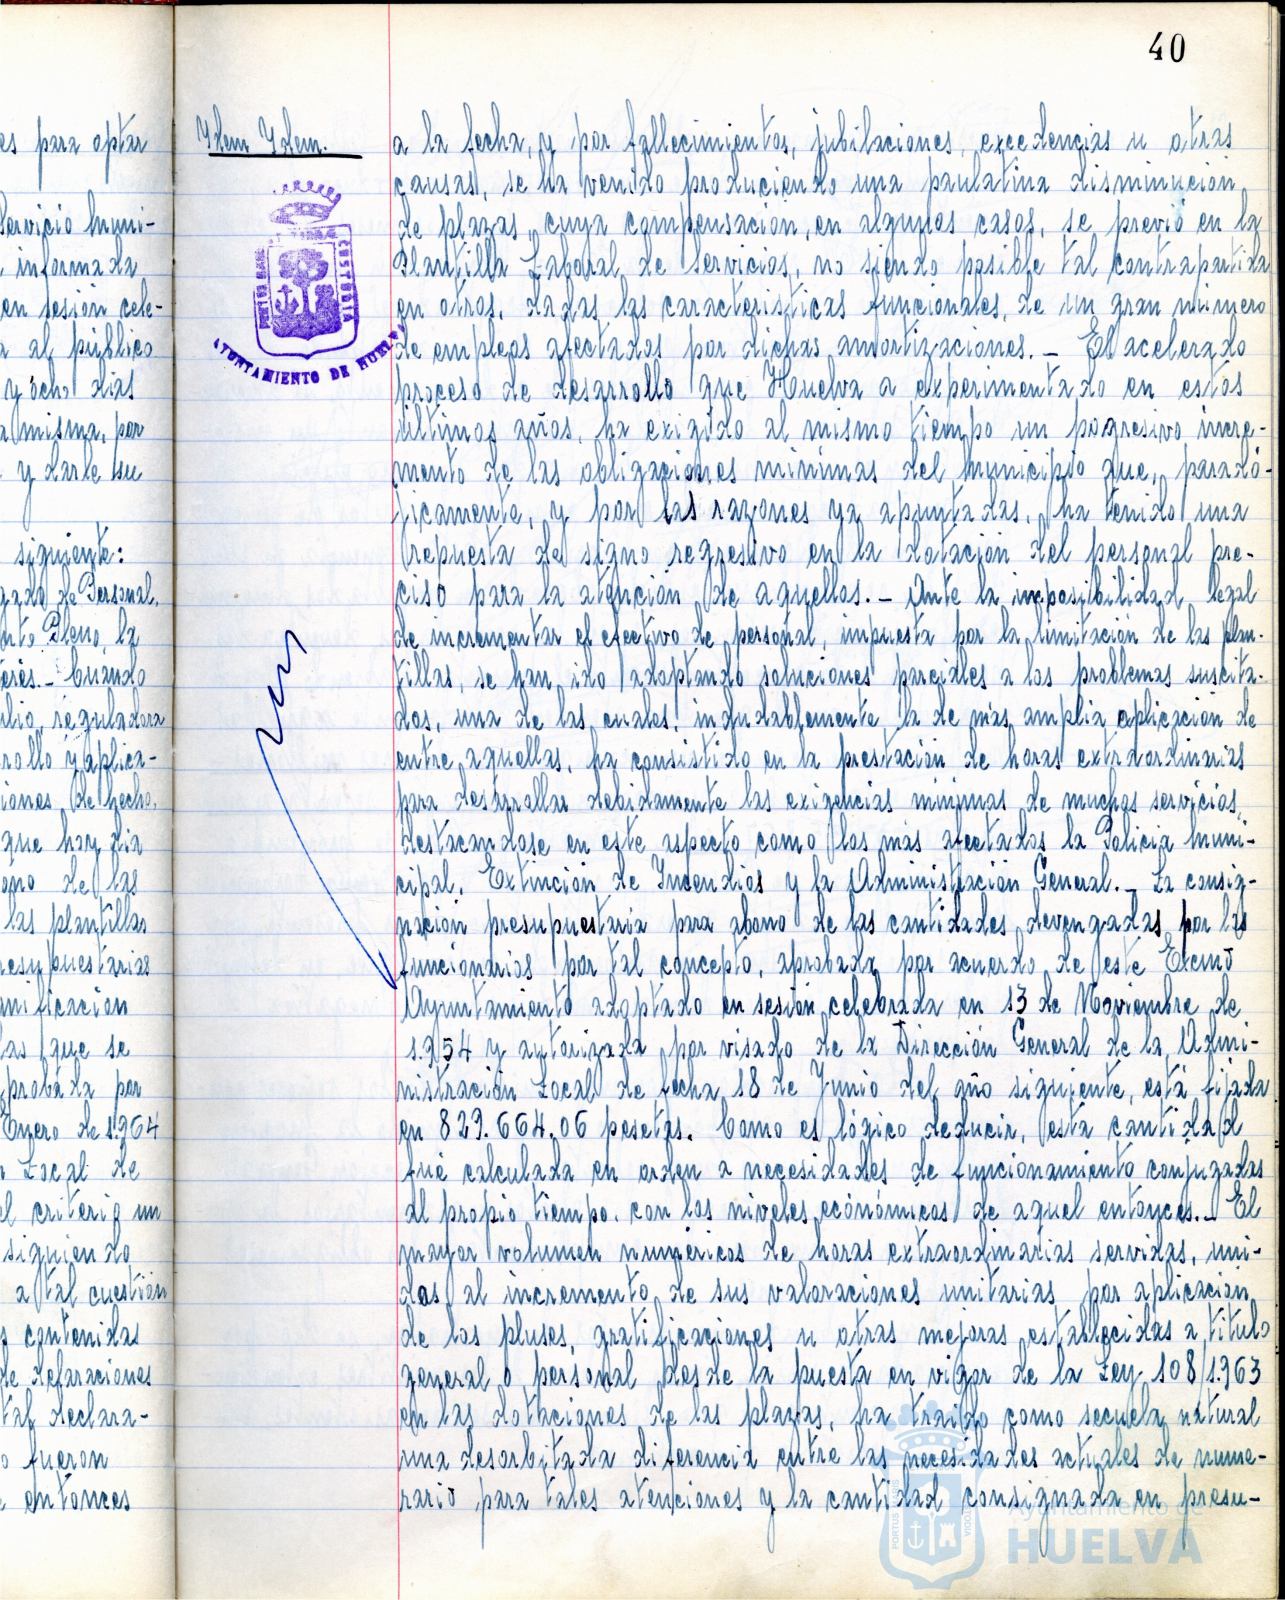 40
es para optar
Servicio Muni-
informada
en sesión cele-
a al público
y ocho dias
a misma, por
y darle su
siguiente:
de Personal,
Pleno, la
Cuando
reguladora
rollo y aplica-
iones de hecho,
que hoy dia
de las
las plantillas
esupuestarias
nificación
as que se
probada por
Enero de 1.964
Local de
el criterio un
siguiendo
a tal cuestión
contenidas
de declaraciones
tal declara-
o fueron
entonces
Ydem Ydem.
PORTUS MARIS
ET TERRAE
CUSTODIA
AYUNTAMIENTO DE HUELVA
a la fecha, y por fallecimientos, jubilaciones, excedencias u otras
causas, se ha venido produciendo una paulatina disminución
de plazas, cuya compensación, en algunos casos, se previó en la
Plantilla Laboral de servicios, no siendo posible tal contrapartida
en otros, dadas las caracteristicas funcionales, de un gran número
de empleos afectados por dichas amortizaciones.- El acelerado
proceso de desarrollo que Huelva a experimentado en estos
últimos años, ha exigido al mismo tiempo un pogresivo incre-
mento de las obligaciones mínimas del Municipio que, paradó-
jicamente, y por las razones ya apuntadas, ha tenido una
repuesta de signo regresivo en la dotación del personal pre-
ciso para la atención de aquellos.- Ante la imposibilidad legal
de incrementar el efectivo de personal, impuesta por la limitación de las plan-
tillas, se han ido adoptando soluciones parciales a los problemas suscita-
dos, una de las cuales, indudablemente la de más amplia aplicación de
entre aquellas, ha consistido en la prestación de horas extraordinarias
para desarrollar debidamente las exigencias mínimas de muchos servicios,
destacandose en este aspecto como los más afectados la Policia Muni-
cipal, Extinción de Incendios y la Administración General.- La consig-
nación presupuestaria para abono de las cantidades devengadas por los
funcionarios por tal concepto, aprobada por acuerdo de este Excmo
Ayuntamiento adoptado en sesión celebrada en 13 de Noviembre de
1.954 y autorizada por visado de la Dirección General de la Admi-
nistración Local de fecha 18 de Junio del año siguiente, está fijada
en 829.664.06 pesetas. Como es lógico deducir, esta cantidad
fué calculada en orden a necesidades de funcionamiento conjugadas
al propio tiempo, con los niveles económicos de aquel entonces.- El
mayor volumen numéricos de horas extraordinarias servidas, uni-
das al incremento de sus valoraciones unitarias por aplicación
de los pluses, gratificaciones u otras mejoras establecidas a titulo
general o personal desde la puesta en vigor de la Ley 108/1.963
en las dotaciones de las plazas, ha traido como secuela natural
una desorbitada diferencia entre las necesidades actuales de nume-
rario para tales atenciones y la cantidad consignada en presu-
PORTUS MARIS
CUSTODIA
Ayuntamiento de
HUELVA